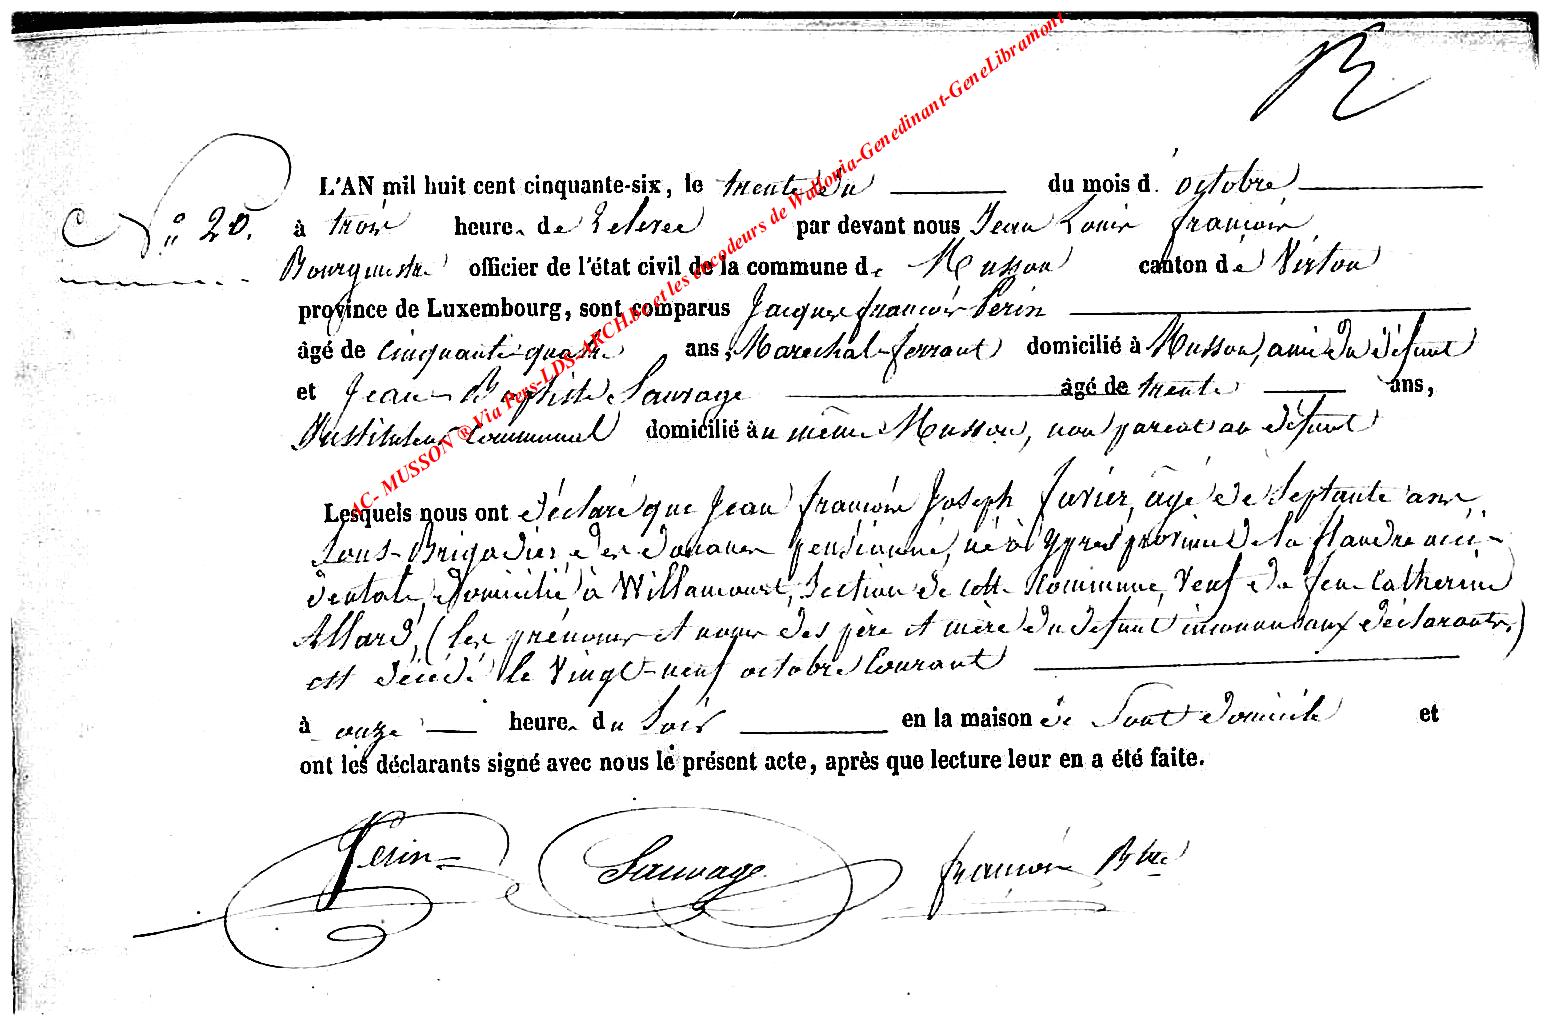 N° 20.
L'AN mil huit cent cinquante-six, le trente un du mois d'octobre
à trois heure. de relevée par devant nous Jean Louis françois
Bourgmestre officier de l'état civil de la commune de Musson canton de Virton
province de Luxembourg, sont comparus Jacques françois Perin
âgé de cinquante-quatre ans, Marechal-ferrant domicilié à Musson, ami du défunt
et Jean-Baptiste Sauvage âgé de trente ans,
Instituteur communal domicilié au même Musson, non parent au défunt
Lesquels nous ont déclaré que Jean françois Joseph Juvier, âgé de septante ans,
Sous-Brigadier des douanes pensionné, né à Ypres province de la flandre occi-
dentale, domicilié à Willancourt, Section de cette commune, veuf de feue Catherine
Allard, (les prénoms et noms des père et mère du défunt inconnus aux déclarants,)
est décédé le vingt-neuf octobre Courant
à onze heure. du soir en la maison de Sont domicile et
ont les déclarants signé avec nous le présent acte, après que lecture leur en a été faite.
Perin Sauvage françois Bmtre
AC- MUSSON ® Via Pers-LDS-ARCH.be et les encodeurs de Wallonia-Genedinant-GeneLibramont